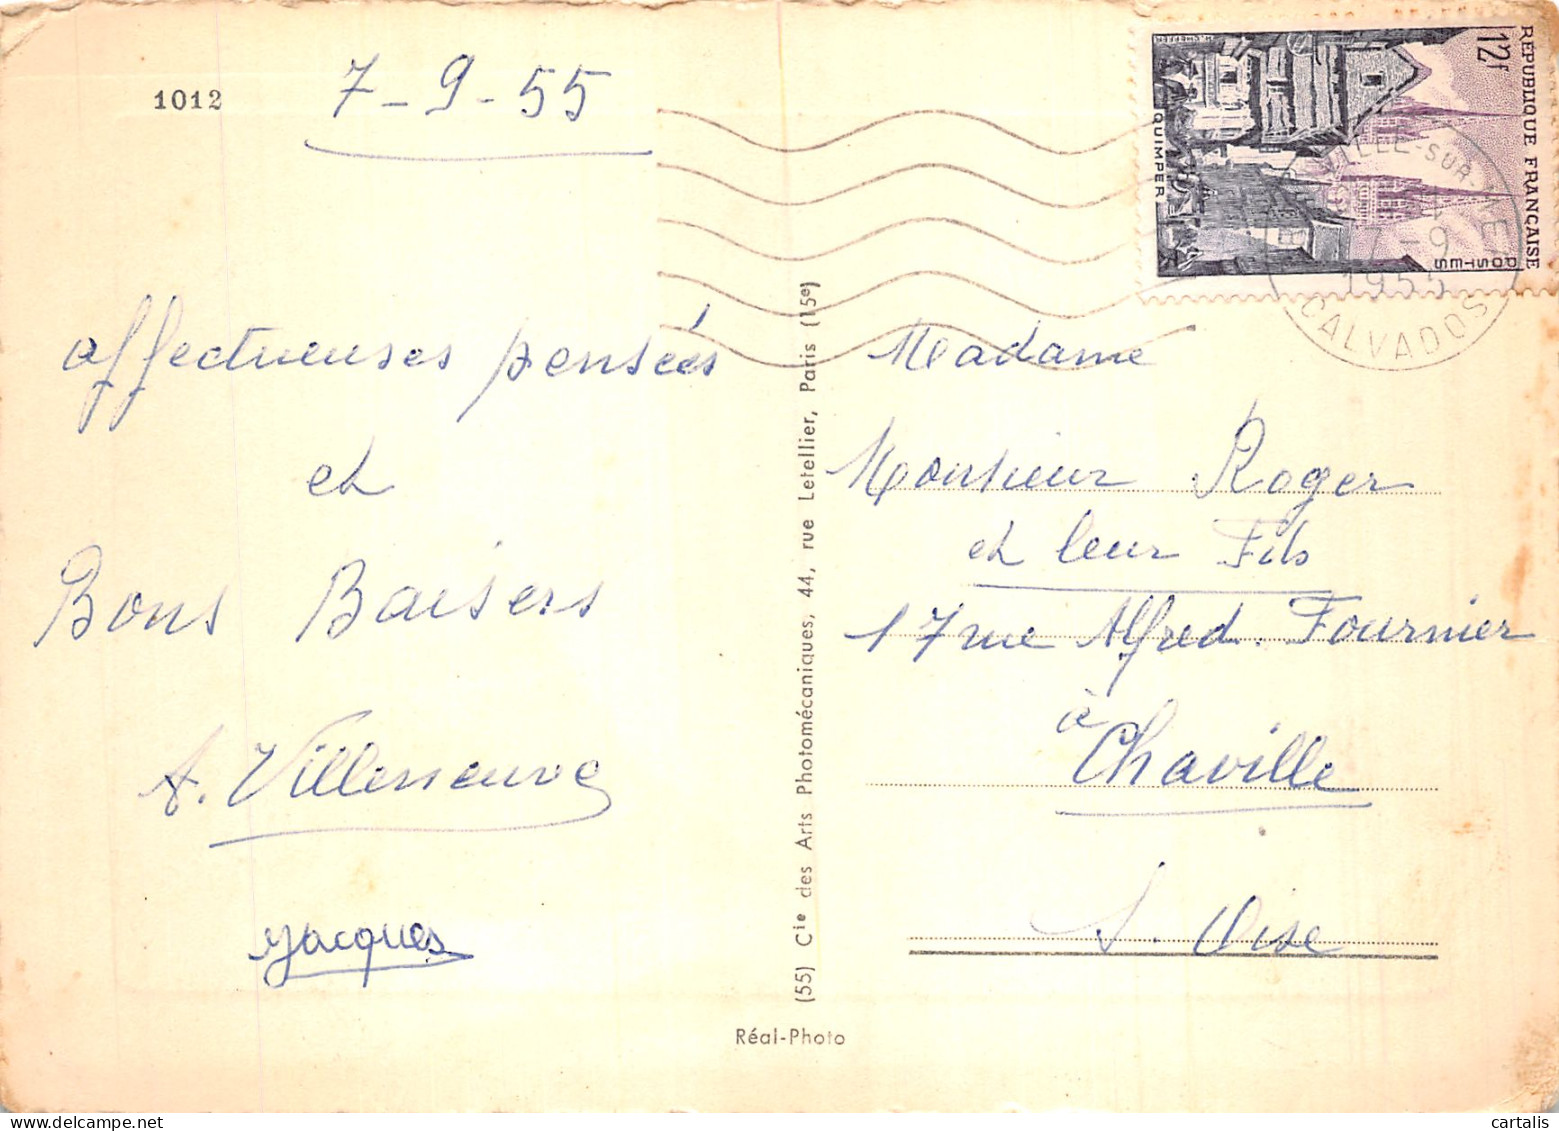 1012
7-9-55
affectueuses pensées
et
Bons Baisers
A. Villeneuve
Jacques
(55) Cie des Arts Photomécaniques, 44, rue Letellier, Paris (15e)
Réal-Photo
RÉPUBLIQUE FRANÇAISE
12f
POSTES
QUIMPER
SUR-MER
7-9
1955
CALVADOS
Madame
Monsieur Roger
et leur Fils
17 rue Alfred. Fournier
à
Chaville
S. Oise
cartalis